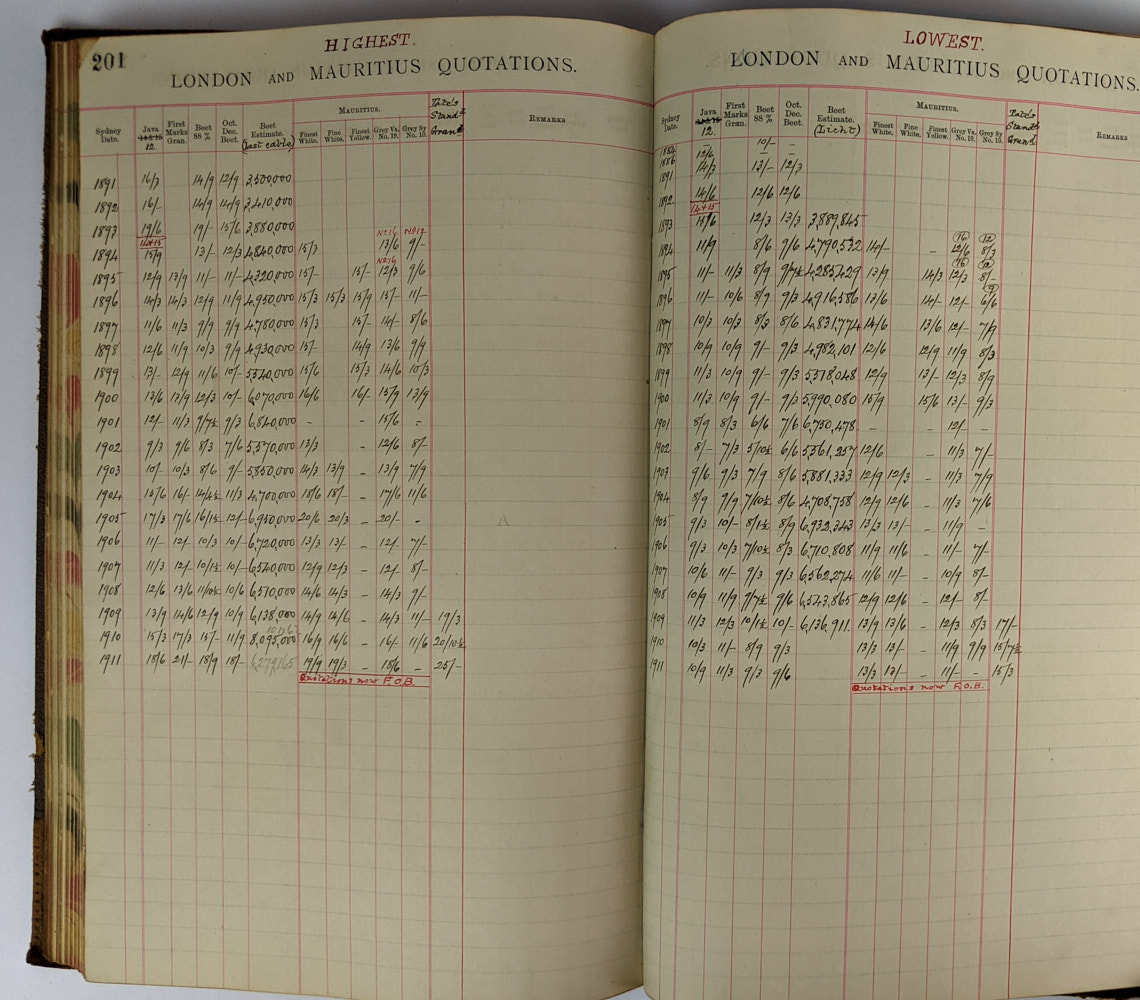 201
HIGHEST.
LONDON AND MAURITIUS QUOTATIONS.
Sydney Date. Java 14 & 15 12. First Marks Gran. Beet 88 % Oct. Dec. Beet. Beet Estimate. (last cable) MAURITIUS. Finest White. Fine White. Finest Yellow. Grey Va. No. 19. Grey Sy No. 10. Tate's Standd Grand REMARKS
1891 16/3 14/9 12/9 3,500,000
1892 16/- 14/9 14/9 3,410,000
1893 19/6 19/- 15/6 3,880,000
14 & 15 No 16 No 12
1894 15/9 13/- 12/3 4,840,000 15/3 13/6 9/-
No 16
1895 12/9 13/9 11/- 11/- 4,320,000 15/- 15/- 12/3 9/6
1896 14/3 14/3 12/9 11/9 4,950,000 15/3 15/3 15/9 15/- 11/-
1897 11/6 11/3 9/9 9/9 4,780,000 15/3 15/- 14/- 8/6
1898 12/6 11/9 10/3 9/9 4,930,000 15/- 14/9 13/6 9/9
1899 13/- 12/9 11/6 10/- 5,540,000 15/6 15/3 14/6 10/3
1900 13/6 13/9 12/3 10/- 6,070,000 16/6 16/- 15/9 13/9
1901 12/- 11/3 9/7½ 9/3 6,840,000 - - 15/6 -
1902 9/3 9/6 8/3 7/6 5,570,000 13/3 - 12/6 8/-
1903 10/- 10/3 8/6 9/- 5,850,000 14/3 13/9 - 13/9 7/9
1904 15/6 16/- 14/4½ 11/3 4,700,000 18/6 18/- - 17/6 11/6
1905 17/3 17/6 16/1½ 12/- 6,950,000 20/6 20/3 - 20/- -
1906 11/- 12/- 10/3 10/- 6,720,000 13/3 13/- - 12/- 7/-
1907 11/3 12/- 10/1½ 10/- 6,540,000 12/9 12/3 - 12/- 8/-
1908 12/6 13/6 11/10½ 10/6 6,570,000 14/6 14/3 - 14/3 9/-
1909 13/9 14/6 12/9 10/9 6,138,000 14/9 14/6 - 14/3 11/- 19/3
1910 15/3 17/3 15/- 11/9 8,095,000 16/9 16/6 - 16/- 11/6 20/10½
1911 18/6 21/- 18/9 18/- 19/9 19/3 - 18/6 - 25/-
Quotations now F.O.B.
LOWEST.
LONDON AND MAURITIUS QUOTATIONS.
Sydney Date. Java 12. First Marks Gran. Beet 88 % Oct. Dec. Beet. Beet Estimate. (Licht) MAURITIUS. Finest White. Fine White. Finest Yellow. Grey Va. No. 19. Grey Sy No. 10. Tate's Standd Grand REMARKS
1884 - 10/- -
1886 12/6 - -
1891 14/3 13/- 12/3
1892 14/6 12/6 12/6
14 & 15
1893 15/6 12/3 13/3 3,889,845
16 12
1894 11/9 8/6 9/6 4,790,532 14/- - 12/6 8/3
16 12
1895 11/- 11/3 8/9 9/7½ 4,285,429 13/9 14/3 12/3 8/-
9
1896 11/- 10/6 8/9 9/3 4,916,586 13/6 14/- 12/- 6/6
1897 10/3 10/3 8/3 8/6 4,831,774 14/6 13/6 12/- 7/9
1898 10/9 10/9 9/- 9/3 4,982,101 12/6 12/9 11/9 8/3
1899 11/3 10/9 9/- 9/3 5,518,048 12/9 13/- 12/3 8/9
1900 11/3 10/9 9/- 9/3 5,990,080 15/9 15/6 13/- 9/3
1901 8/9 8/3 6/6 7/6 6,750,478 - - 12/- -
1902 8/- 7/3 5/10½ 6/6 5,561,257 12/6 11/3 7/-
1903 9/6 9/3 7/9 8/6 5,881,333 12/9 12/3 - 11/3 7/9
1904 8/9 9/9 7/10½ 8/6 4,708,758 12/9 12/6 - 11/3 7/6
1905 9/3 10/- 8/1½ 8/9 6,932,343 13/3 13/- - 11/9 -
1906 9/3 10/3 7/10½ 8/3 6,710,808 11/9 11/6 - 11/- 7/-
1907 10/6 11/- 9/3 9/3 6,562,274 11/6 11/- - 10/9 8/-
1908 10/9 11/9 9/7½ 9/6 6,543,865 12/9 12/6 - 12/- 8/-
1909 11/3 12/3 10/1½ 10/- 6,136,911. 13/9 13/6 - 12/3 8/3 17/-
1910 10/3 11/- 8/9 9/3 13/3 13/- - 11/9 9/9 15/7½
1911 10/9 11/3 9/3 9/6 13/3 13/- - 11/- - 15/3
Quotations now F.O.B.